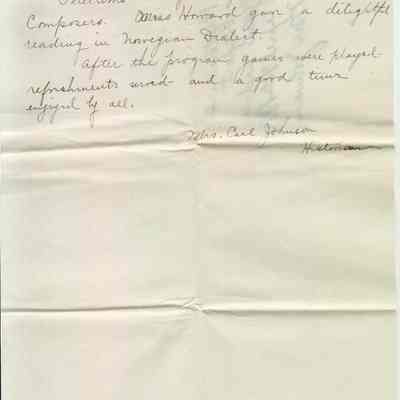 Composers. Miss Howard gave a delightful
reading in Norwegian Dialect.
After the program games were played
refreshments served and a good time
enjoyed by all.
Mrs. Carl Johnson
Historian